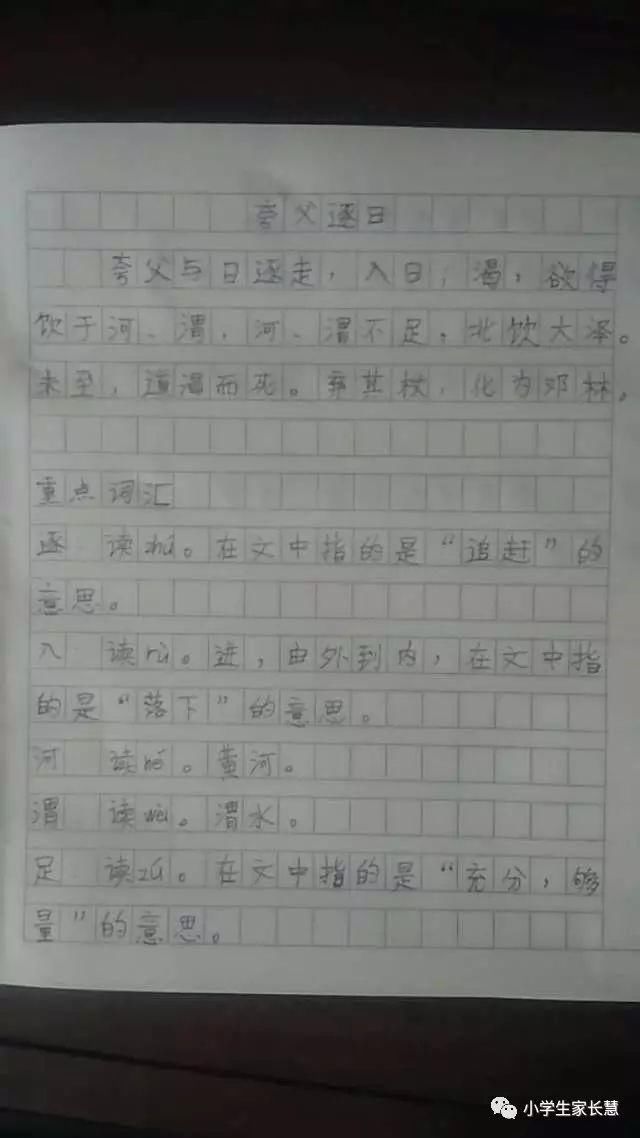 夸父逐日
夸父与日逐走，入日；渴，欲得
饮于河、渭，河、渭不足，北饮大泽。
未至，道渴而死。弃其杖，化为邓林。
重点词汇
逐 读zhú。在文中指的是“追赶”的
意思。
入 读rù。进，由外到内，在文中指
的是“落下”的意思。
河 读hé。黄河。
渭 读wèi。渭水。
足 读zú。在文中指的是“充分，够
量”的意思。
小学生家长慧